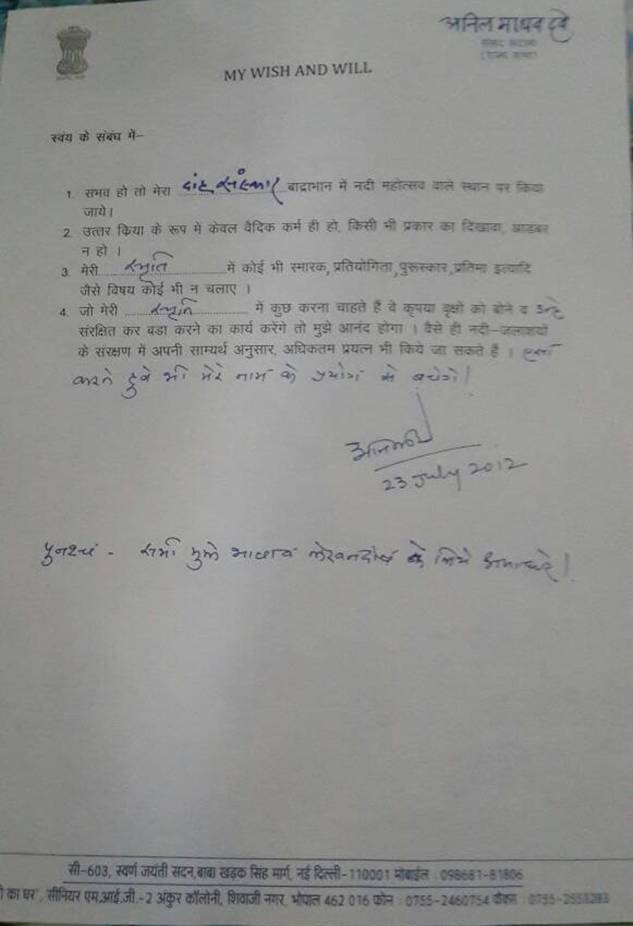 अनिल माधव दवे
संसद सदस्य
(राज्य सभा)
MY WISH AND WILL
स्वंय के संबंध में–
1. सभव हो तो मेरा दाह संस्कार बाद्राभान में नदी महोत्सव वाले स्थान पर किया
जाये।
2. उत्तर किया के रूप में केवल वैदिक कर्म ही हो, किसी भी प्रकार का दिखावा, आडबर
न हो ।
3. मेरी स्मृति में कोई भी स्मारक, प्रतियोगिता, पुरूस्कार, प्रतिमा इत्यादि
जैसे विषय कोई भी न चलाए ।
4. जो मेरी स्मृति में कुछ करना चाहते हैं वे कृपया वृक्षों को बोने व उन्हे
संरक्षित कर बडा करने का कार्य करेगें तो मुझे आनंद होगा । वैसे ही नदी–जलाशयों
के संरक्षण में अपनी साम्यर्थ अनुसार, अधिकतम प्रयत्न भी किये जा सकते है । ऐसा
करते हुवे भी मेरे नाम के प्रयोग से बचेगे!
23 July 2012
पुनश्च - सभी मुझे भाषा व लेखनदोष के लिये क्षमा करे!
सी–603, स्वर्ण जयंती सदन, बाबा खड़क सिंह मार्ग, नई दिल्ली–110001 मोबाईल : 098681-81806
का घर', सीनियर एम.आई.जी.–2 अंकुर कॉलोनी, शिवाजी नगर, भोपाल 462 016 फोन : 0755-2460754 फैक्स : 0755-2553283